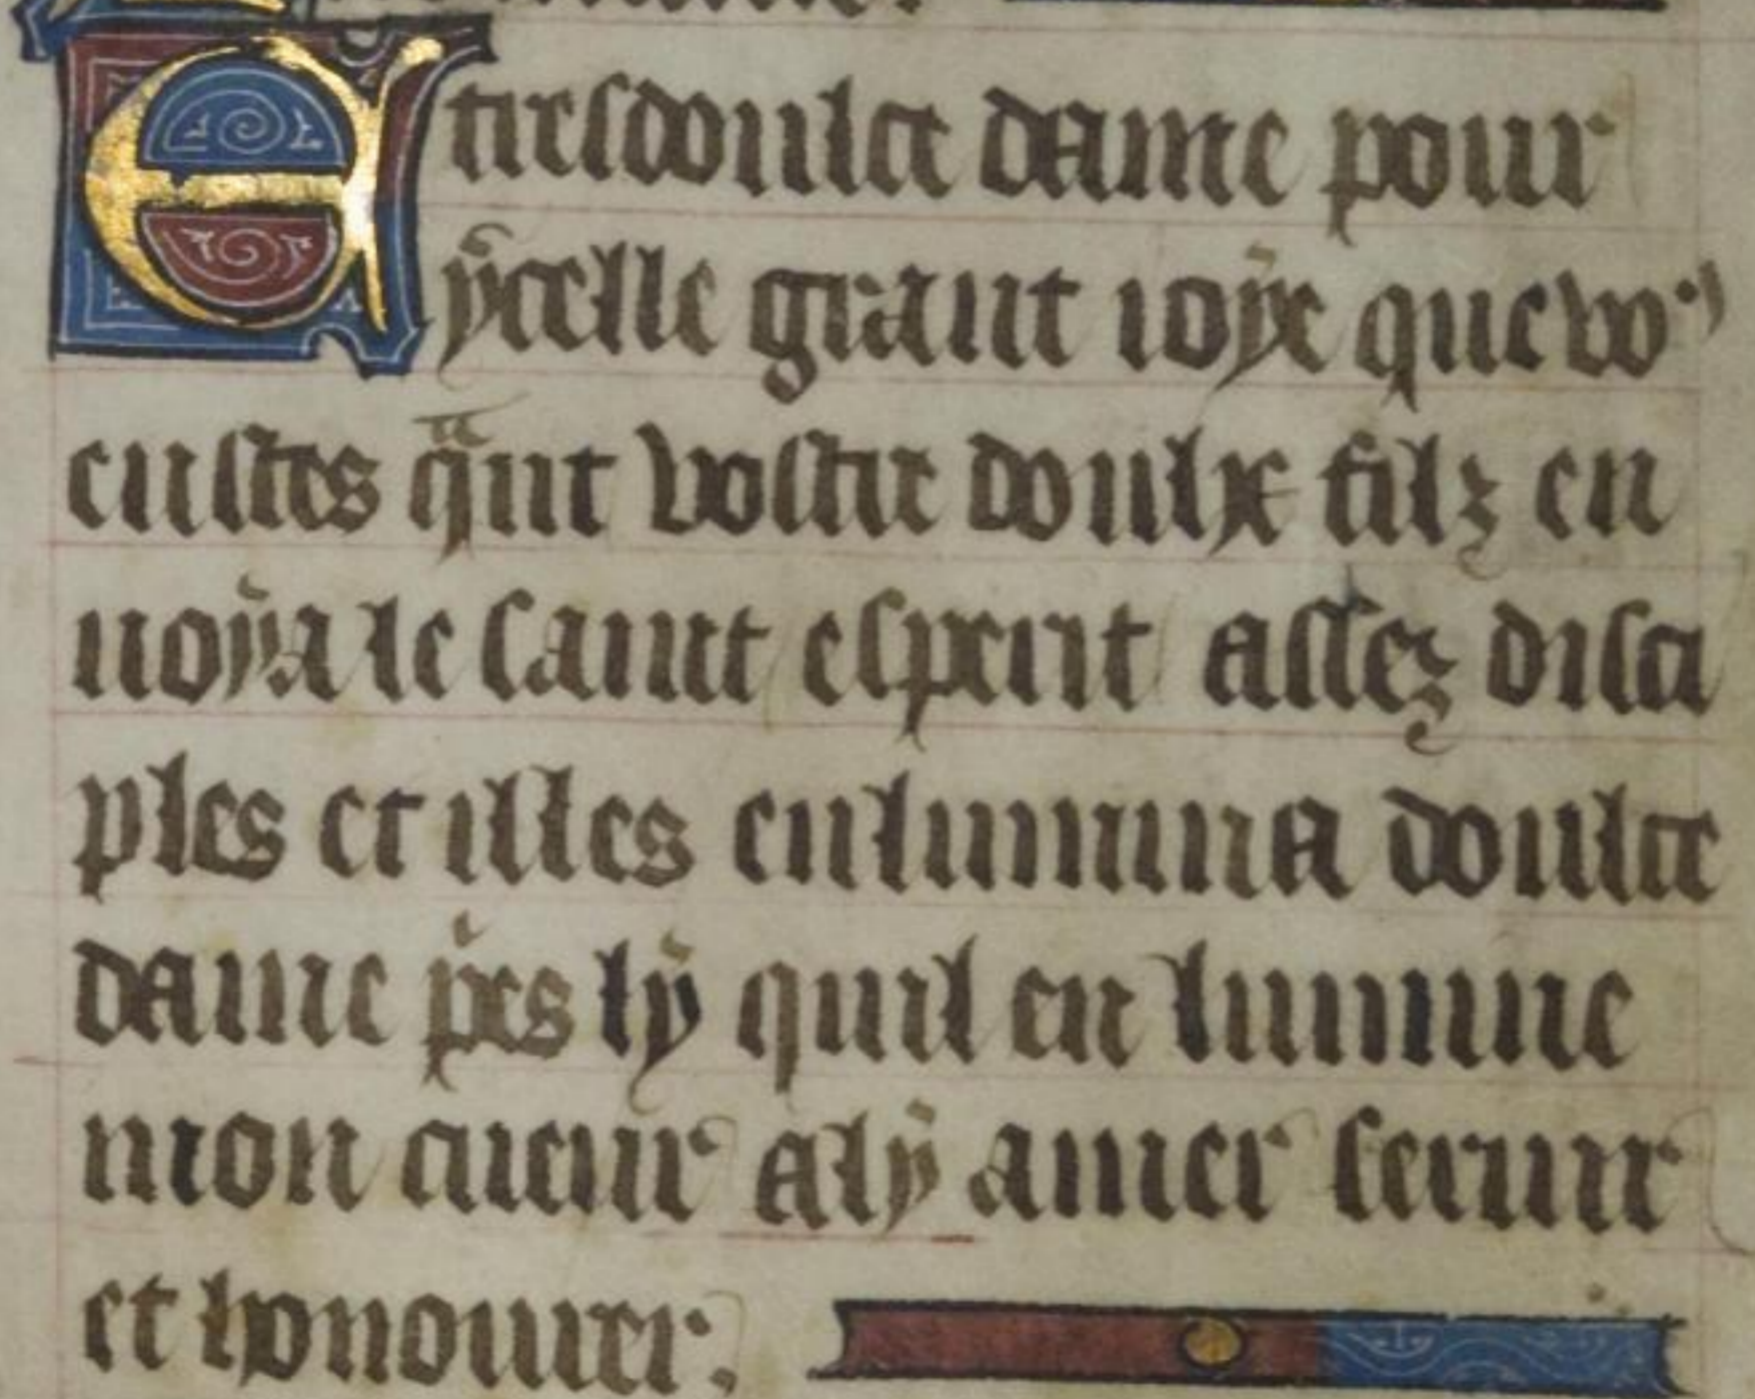 E tresdoulce dame pour
ycelle grant ioye que vo9
eustes qͣnt vostre doulx filz en
uoya le saint esperit assez disci
ples et illes enlumina doulce
dame pͥes ly quil en lumine
mon cueur a ly amer seruir
et honourer.